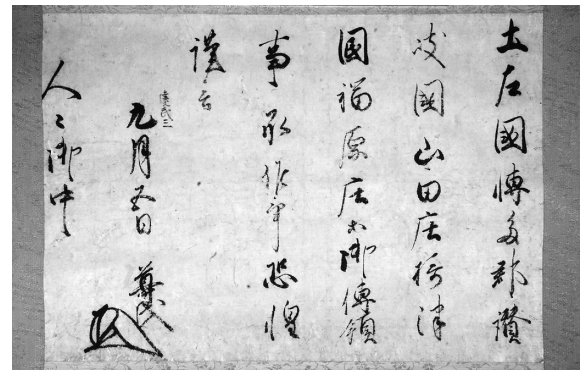 土左國幡多郡讃
岐國山田庄摂津
國福原庄等御傳領
事承候畢恐惶
謹言
建武三
九月五日 尊氏
人々御中